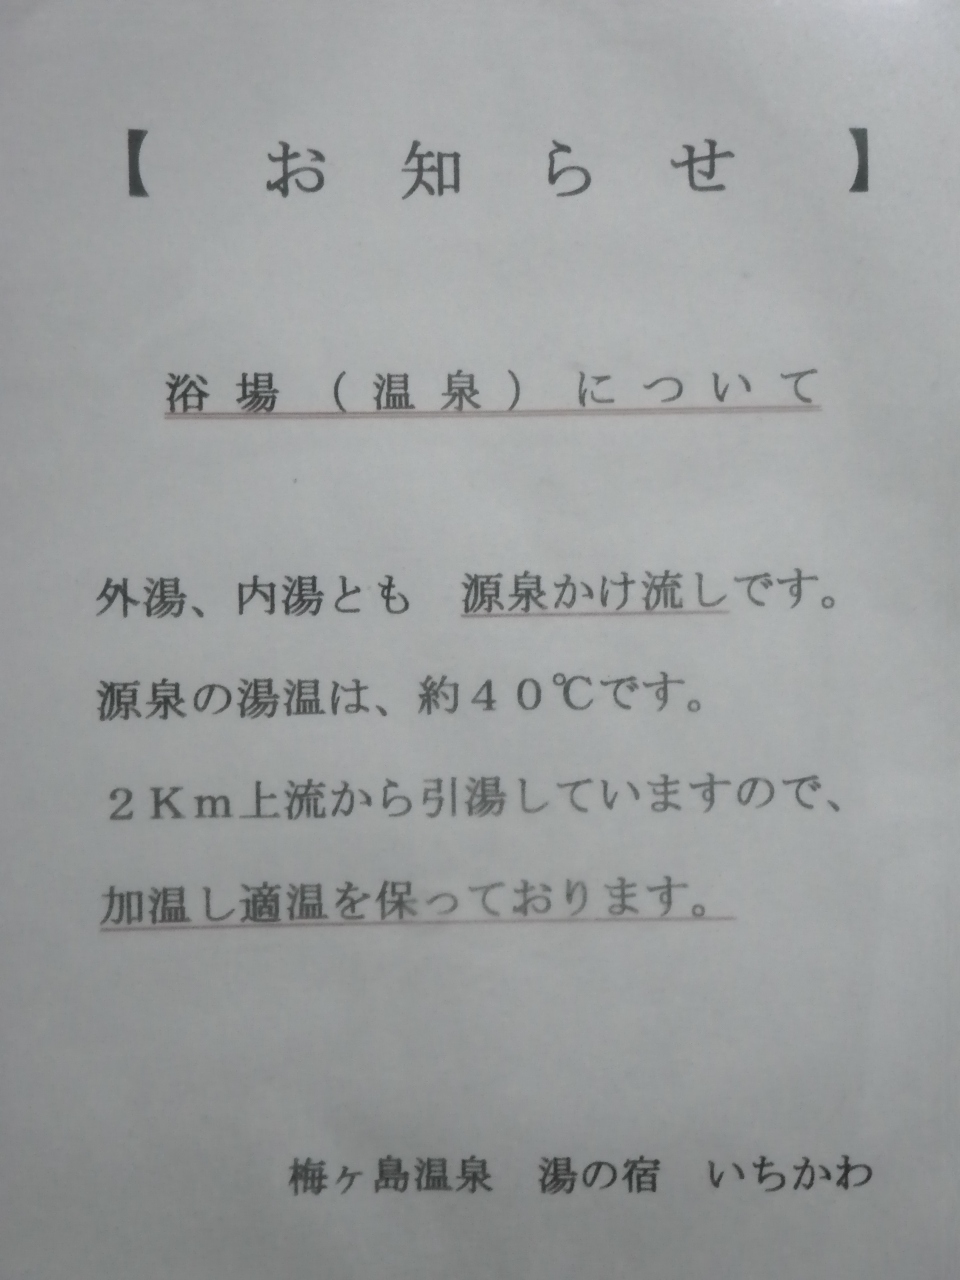 【　お　知　ら　せ　】
浴場（温泉）について
外湯、内湯とも　源泉かけ流しです。
源泉の湯温は、約４０℃です。
２Ｋｍ上流から引湯していますので、
加温し適温を保っております。
梅ヶ島温泉　湯の宿　いちかわ